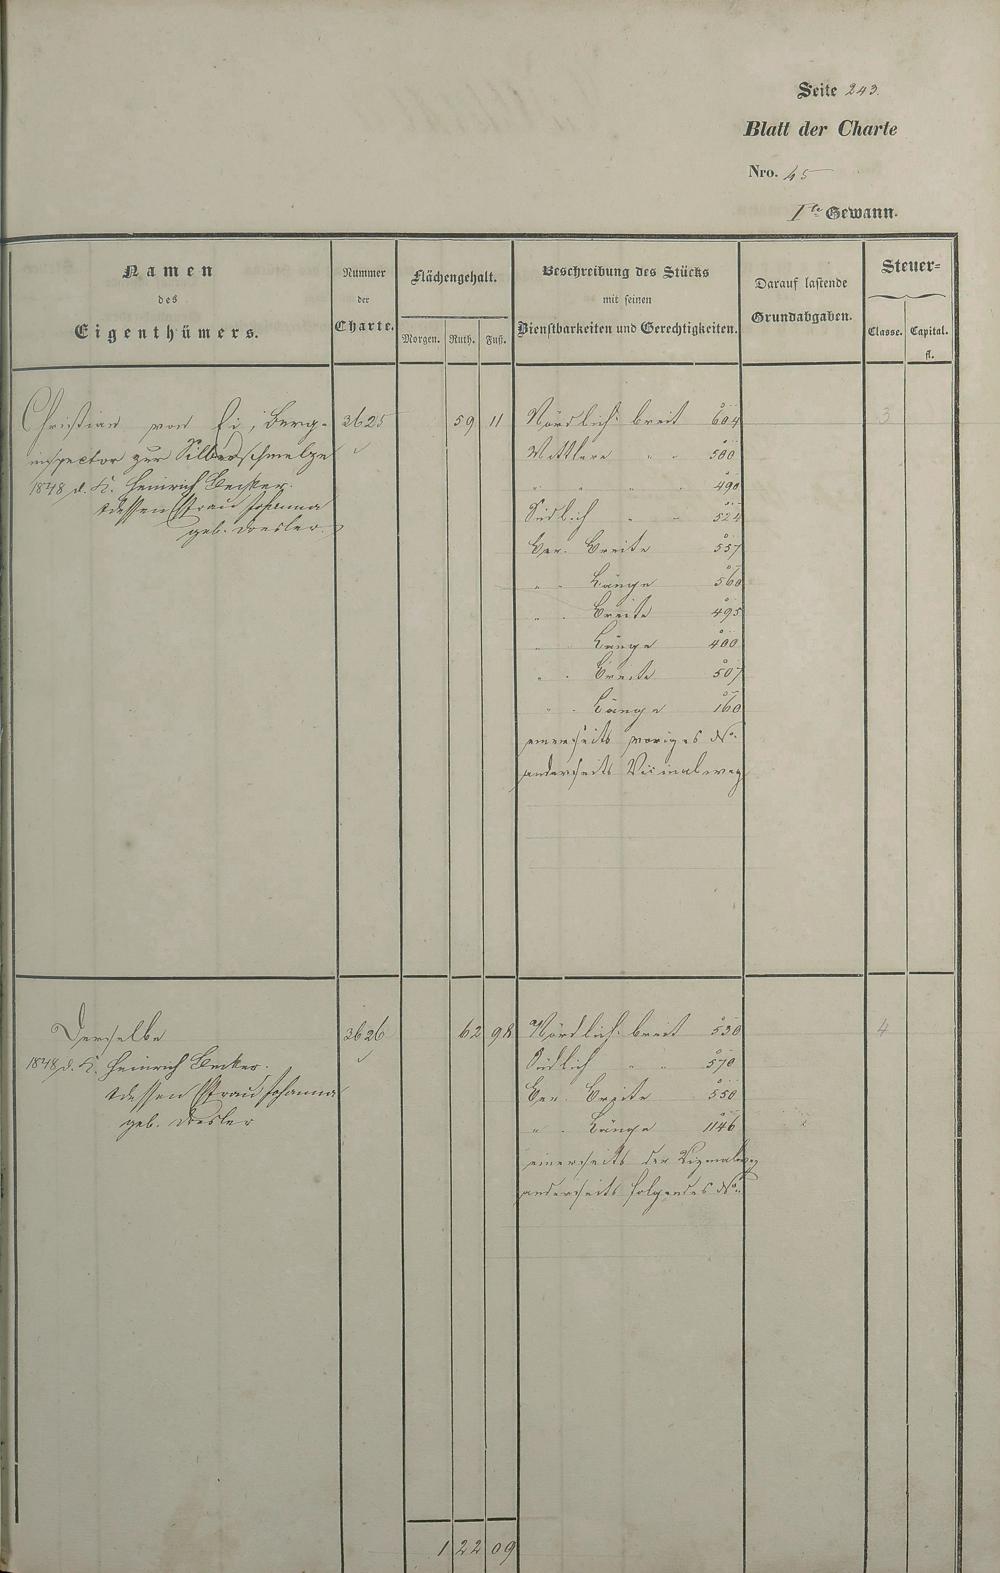 Seite 243.
Blatt der Charte
Nro. 45
Ite Gewann.
Namen
des
Eigenthümers.
Nummer
der
Charte.
Flächengehalt.
Morgen. Ruth. Fuß.
Beschreibung des Stücks
mit seinen
Dienstbarkeiten und Gerechtigkeiten.
Darauf lastende
Grundabgaben.
Steuer=
Classe. Capital.
fl.
Christian von Berg- 3625 59 11 Nördlich breit 604 3
inspector zur Silberschmelze Mittlere " " 500
1848 d. K. Heinrich Becker. " " " " 490
& dessen Frau Johanna Südlich " " 524
geb. Dresler.
Ver. Breite 557
" " Länge 560
" " Breite 495
" " Länge 400
" " Breite 507
" " Länge 160
einerseits voriges No.
anderseits Vicinalweg
Derselbe 3626 62 98 Nördlich breit 530 4
1848 d. K. Heinrich Becker. Südlich " " 570
& dessen Frau Johanna Ver. Breite 550
geb. Dresler " " Länge 1146
einerseits der Vizinalweg
anderseits folgendes No.
1 22 09